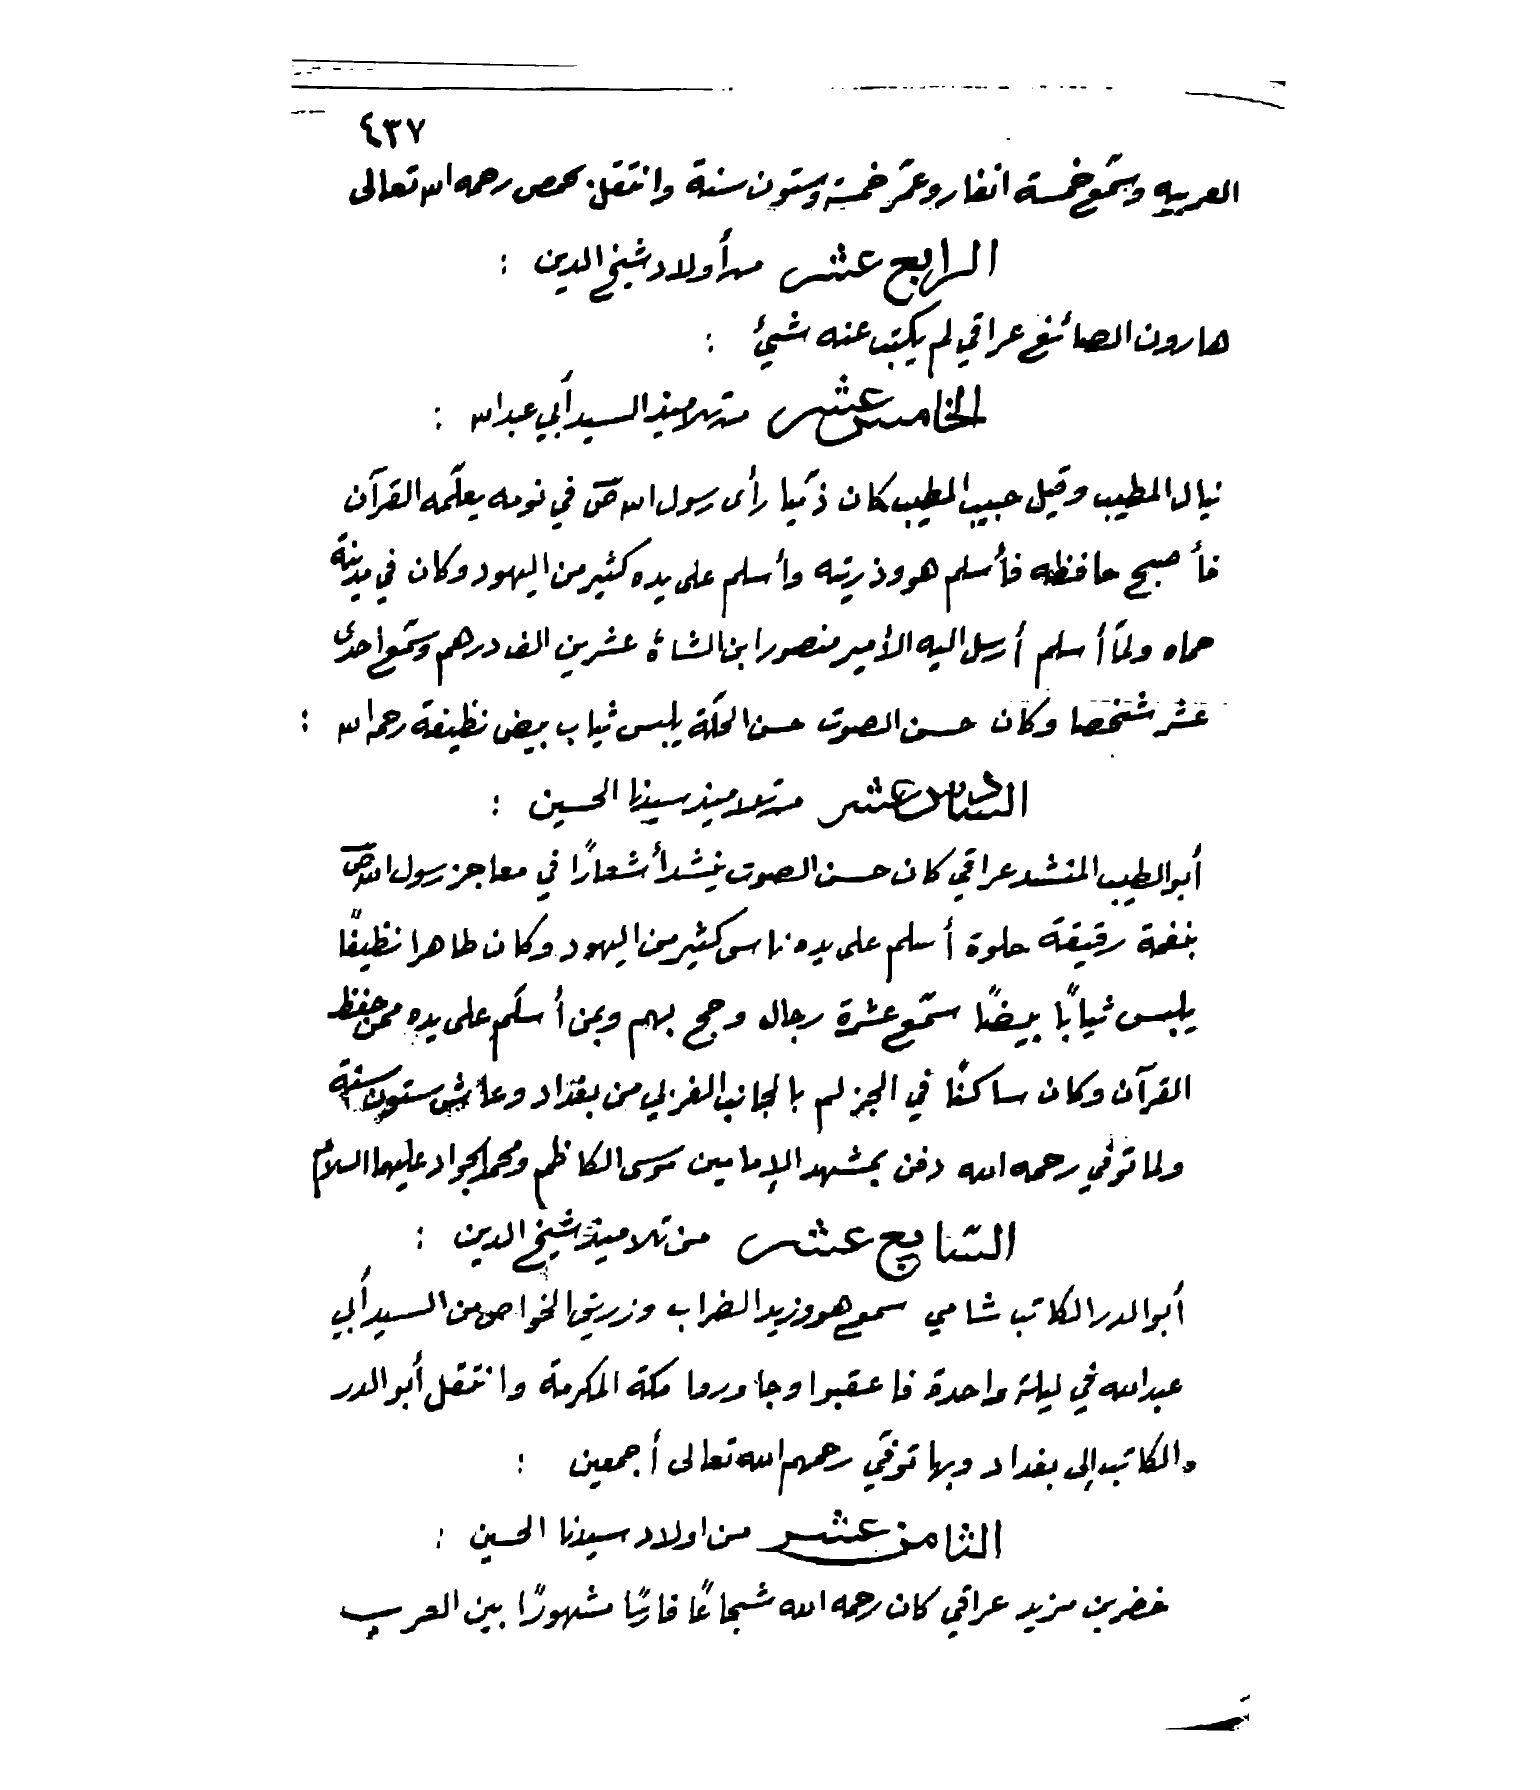 ٤٣٧
العربيه وسمّع خمسة انفار وعمّر خمسة وستون سنة وانتقل بحمص رحمه الله تعالى
الرابع عشر من أولاد شيخ الدين :
هارون الصائغ عراقي لم يكتب عنه شيئ :
الخامس عشر من تلاميذ السيد أبي عبدالله :
نيال المطيب وقيل حبيب المطيب كان ذمّيا رأى رسول الله ص في نومه يعلّمه القرآن
فأصبح حافظه فأسلم هو وذريته وأسلم على يده كثير من اليهود وكان في مدينة
حماه ولمّا أسلم أرسل اليه الأمير منصور ابن الشاة عشرين الف درهم وسمّع احدى
عشر شخصا وكان حسن الصوت حسن الحكّة يلبس ثياب بيض نظيفة رحمه الله :
السادس عشر من تلاميذ سيدنا الحسين :
أبو الطيب المنشد عراقي كان حسن الصوت ينشد أشعارًا في معاجز رسول الله ص
بنغمة رقيقة حلوة أسلم على يده ناس كثير من اليهود وكان طاهرا نظيفًا
يلبس ثيابًا بيضًا سمّع عشرة رجال وحج بهم وبمن أسلم على يده ممن حفظ
القرآن وكان ساكنًا في الجزلم بالجانب الغربي من بغداد وعاش ستون سنة
ولما توفي رحمه الله دفن بمشهد الإمامين موسى الكاظم ومحمد الجواد عليهما السلام
السّابع عشر من تلاميذ شيخ الدين :
أبو الدر الكاتب شامي سمع هو وزيد الضراب وزريق الخواص من السيد أبي
عبدالله في ليلة واحدة فاعقبوا وجاوروا مكة المكرمة وانتقل أبو الدر
والكاتب إلى بغداد وبها توفّي رحمهم الله تعالى أجمعين :
الثامن عشر من اولاد سيدنا الحسين :
خضر بن مزيد عراقي كان رحمه الله شجاعًا فارسًا مشهورًا بين العرب